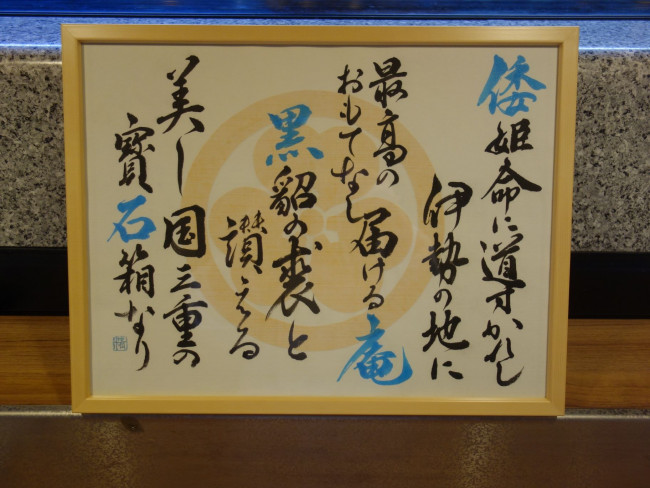 倭姫命に導かれし
伊勢の地に
最高の
おもてなし届ける庵
黒貂の裘と
讃える
美し国三重の
寶石箱なり